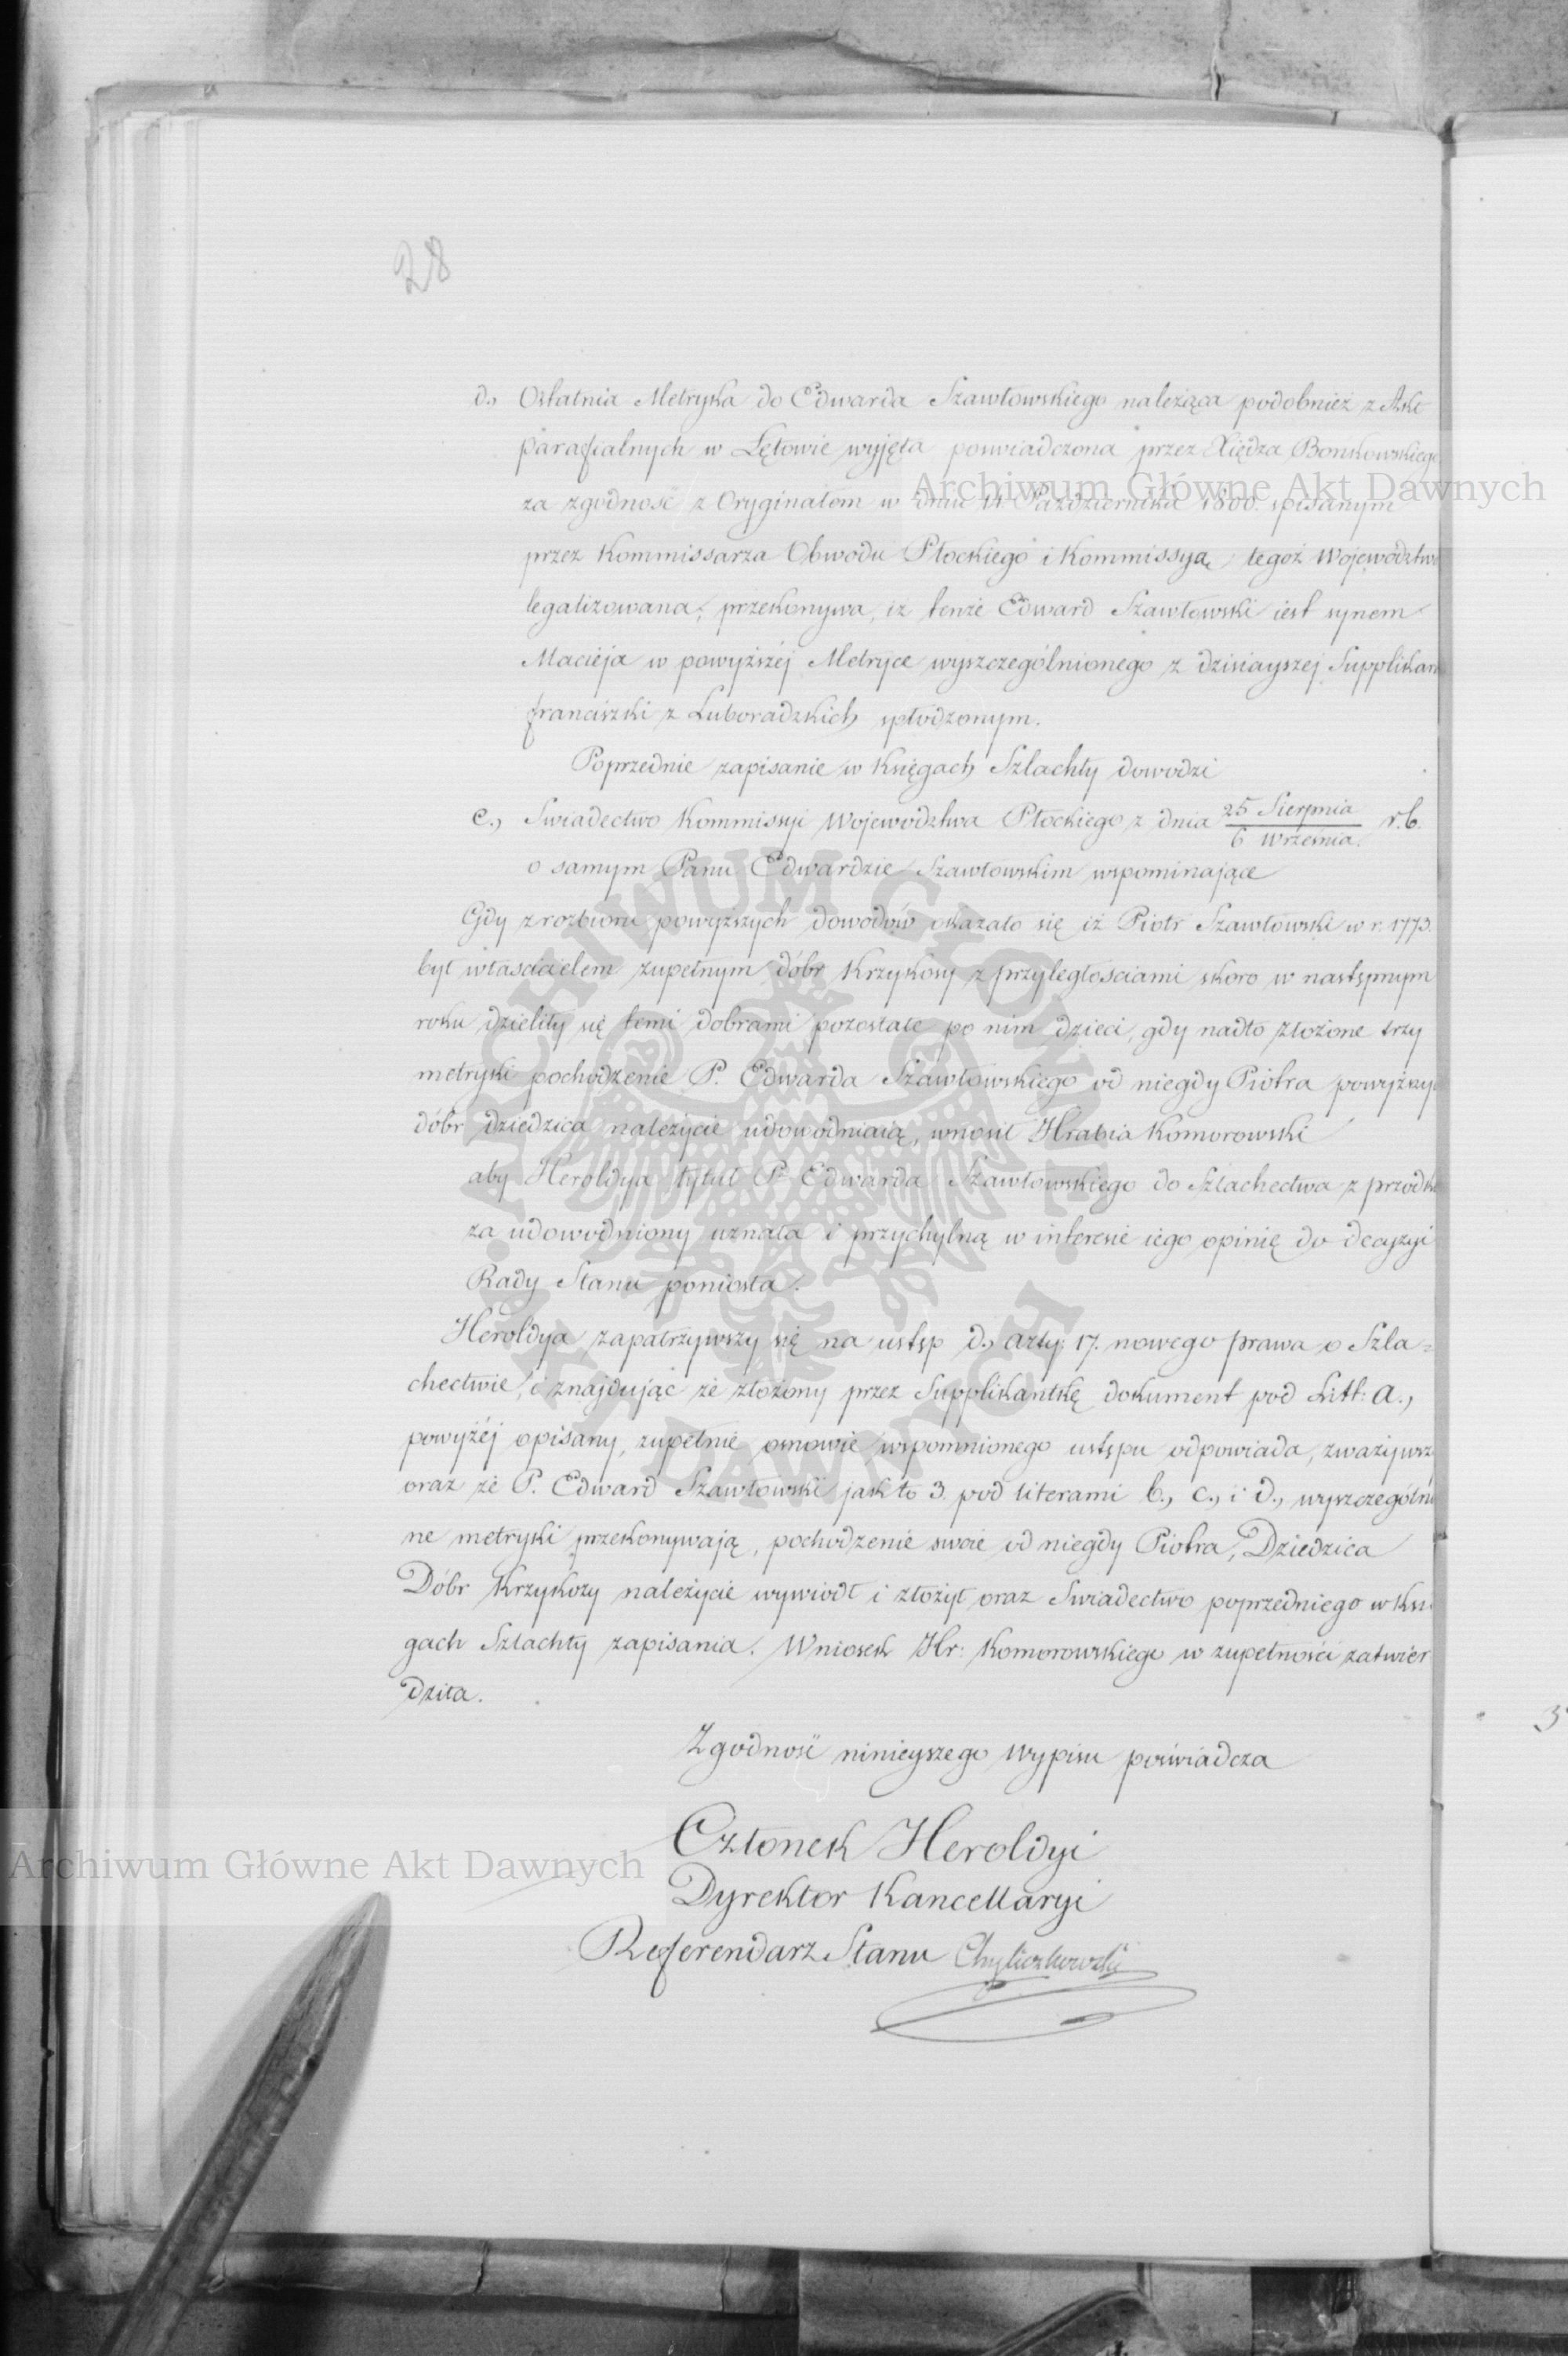 28
d., Ostatnia Metryka do Edwarda Szawłowskiego należąca podobnież z Akt
parafialnych w Łętowie wyjęta poswiadczona przez Xiędza Bonkowskiego
za zgodność z Oryginałem w dniu 11 Pazdziernika 1800. spisanym
przez Kommissarza Obwodu Płockiego i Kommissyą tegoż Wojewodztwa
legalizowana; przekonywa, iż tenże Edward Szawłowski iest synem
Macieja w powyższéj Metryce wyszczególnionego z dzisiayszej Supplikan
franciszki z Luboradzkich spłodzonym.
Poprzednie zapisanie w Księgach Szlachty dowodzi
e., Swiadectwo Kommissyi Wojewodztwa Płockiego z dnia 25 Sierpnia / 6 Września. r.b.
o samym Panu Edwardzie Szawłowskim wspominające
Gdy z rozbioru powyższych dowodów okazało się iż Piotr Szawłowski w r. 1773.
był właścicielem zupełnym dóbr Krzykosy z przyległosciami skoro w następnym
roku dzieliły się temi dobrami pozostałe po nim dzieci, gdy nadto złożone trzy
metryki pochodzenie P. Edwarda Szawłowskiego od niegdy Piotra powyższy
dóbr dziedzica należycie udowodniaią, wnosił Hrabia Komorowski
aby Heroldya tytuł P. Edwarda Szawłowskiego do Szlachectwa z przodk
za udowodniony uznała i przychylną w interesie iego opinię do decyzyi
Rady Stanu poniosła.
Heroldya zapatrzywszy się na ustęp d., arty: 17. nowego prawa o Szla=
chectwie, i znajdując że złożony przez Supplikantkę dokument pod Litt: a.,
powyżéj opisany, zupełnie osnowie wspomnionego ustępu odpowiada, zważywsz
oraz że P. Edward Szawłowski jak to 3. pod literami b., c., i d., wyszczególni
ne metryki przekonywają, pochodzenie swoie od niegdy Piotra, Dziedzica
Dóbr Krzykozy należycie wywiódł i złożył oraz Swiadectwo poprzedniego w Ksi
gach Szlachty zapisania. Wniosek Hr: Komorowskiego w zupełności zatwier
dziła.
Zgodność ninieyszego Wypisu poświadcza
Członek Heroldyi
Dyrektor Kancellaryi
Referendarz Stanu Chyliczkowski
Archiwum Główne Akt Dawnych
Archiwum Główne Akt Dawnych
ARCHIWUM GŁÓWNE AKT DAWNYCH